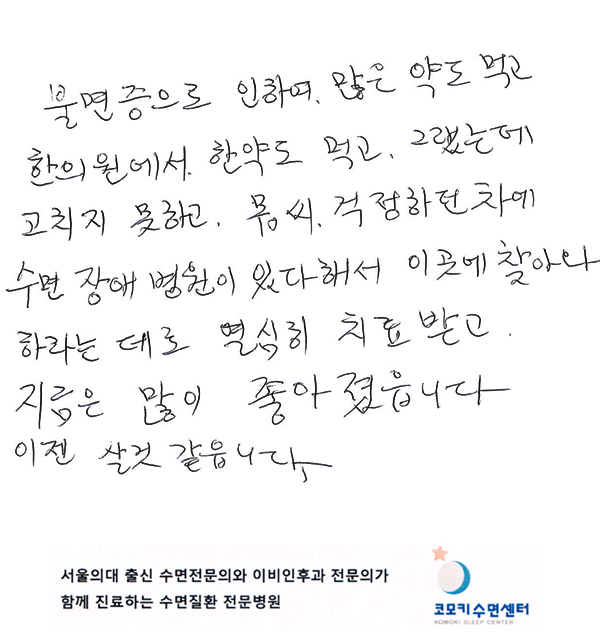 불면증으로 인하여. 많은 약도 먹고
한의원에서. 한약도 먹고. 그랬는데
고치지 못하고. 몹씨. 걱정하던차에
수면 장애 병원이 있다해서 이곳에 찾아와
하라는 데로 열심히 치료 받고.
지금은 많이 좋아졌읍니다
이젠 살것 같읍니다,
서울의대 출신 수면전문의와 이비인후과 전문의가
함께 진료하는 수면질환 전문병원
코모키수면센터
KOMOKI SLEEP CENTER